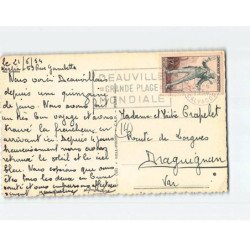 le 21/5/54
53 Rue Gambetta
Nous voici Deauvillais
depuis une quinzaine
de jours. Nous avons
un bon
voyage et avons
trouvé la fraîcheur en
arrivant
heureusement nous avons
retrouvé le soleil et le ciel
bleu. Nous espérons que vous
êtes tous les deux en bonne
santé et vous embrassons affectueusement
DEAUVILLE
GRANDE PLAGE
MONDIALE
Madame et Maître Crapelet
14 Route de Lorgues
Draguignan
Var